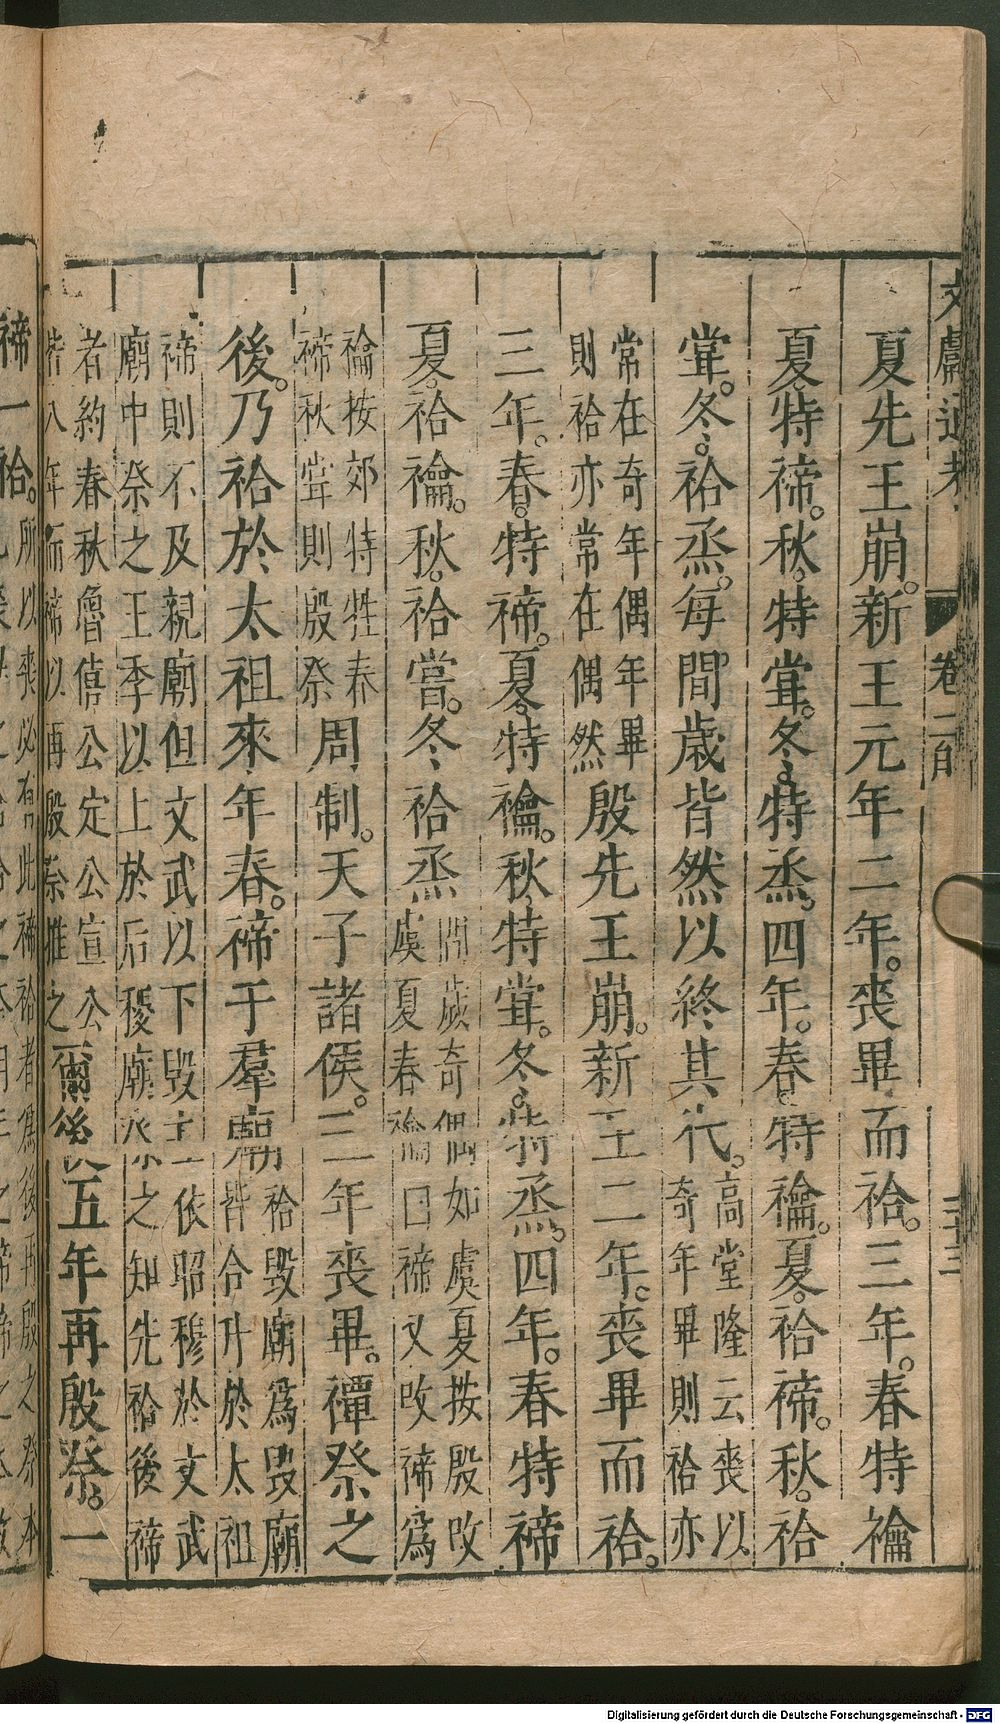 文獻通考 卷二百 二十三
夏先王崩。新王元年二年。喪畢而祫。三年。春特禴
夏。特禘。秋。特甞。冬。特烝。四年。春特禴。夏。祫禘。秋。祫
甞。冬。祫烝。每間歳皆然以終其代。高堂隆云喪以奇年畢則祫亦
常在奇年偶年畢則祫亦常在偶然殷先王崩。新王二年。喪畢而祫。
三年。春。特禘。夏。特禴。秋。特甞。冬。特烝。四年。春特禘
夏。祫禴。秋。祫嘗。冬祫烝間歲奇偶如虞夏按殷改虞夏春禴曰禘又改禘爲
禴按郊特牲春禘秋甞則殷祭周制。天子諸侯。三年喪畢。禫祭之
後。乃祫於太祖來年春。禘于羣廟祫毀廟爲毀廟皆合升於太祖
禘則不及親廟但文武以下毀主依昭穆於文武
廟中祭之王季以上於后稷廟祭之知先祫後禘
者約春秋魯僖公定公宣公皆八年而禘以再殷祭推之爾後五年再殷祭。一
禘一祫。所以喪必有此禘祫者爲後再殷之祭本